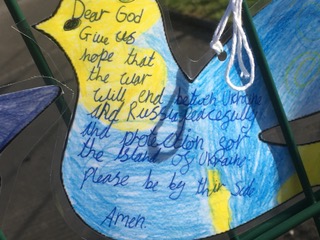 Dear God
Give us
hope that
the war
will end between Ukraine
and Russia peacefully
and protection for
the Island of Ukraine
please be by their side
Amen.